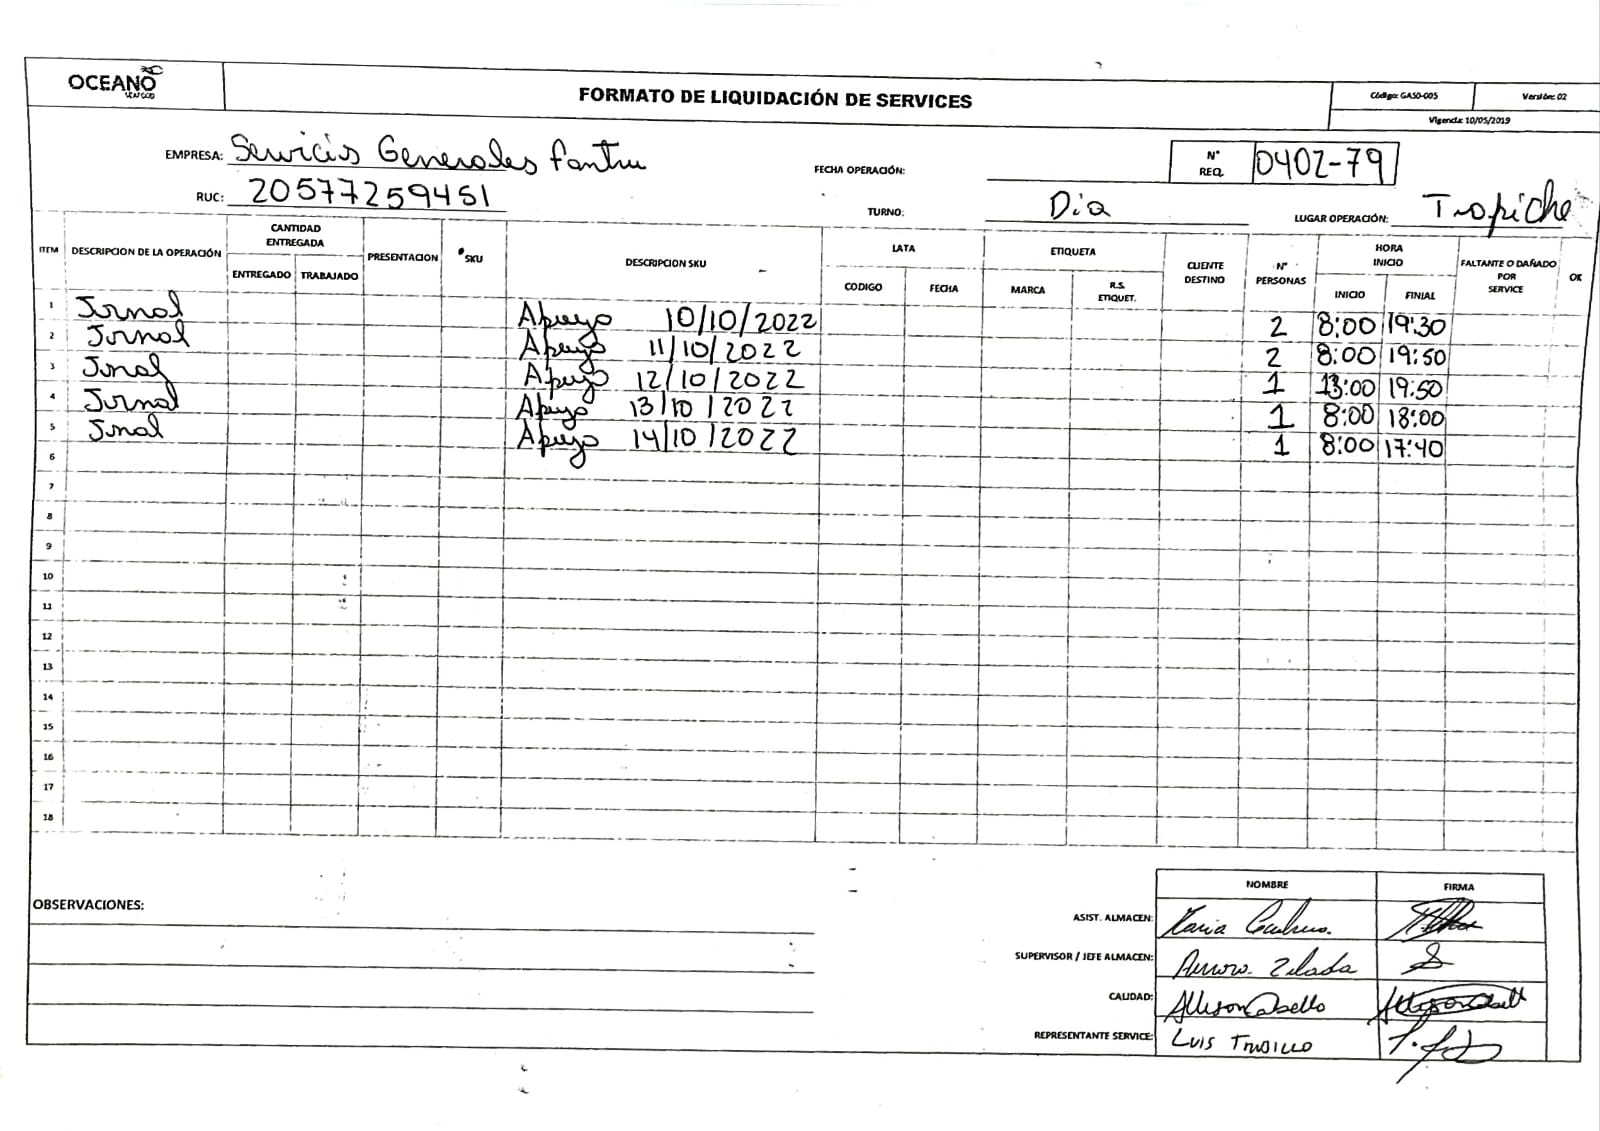 OCEANO
SEAFOOD
FORMATO DE LIQUIDACIÓN DE SERVICES
Código: GASO-005
Versión: 02
Vigencia: 10/05/2019
EMPRESA: Servicis Generales Fantru
FECHA OPERACIÓN:
N° REQ. 0402-79
RUC: 20577259451
TURNO: Dia
LUGAR OPERACIÓN: Tropiche
ITEM DESCRIPCION DE LA OPERACIÓN CANTIDAD ENTREGADA ENTREGADO TRABAJADO PRESENTACION SKU DESCRIPCION SKU LATA CODIGO FECHA ETIQUETA MARCA R.S. ETIQUET. CLIENTE DESTINO N° PERSONAS HORA INICIO INICIO FINIAL FALTANTE O DAÑADO POR SERVICE OK
1 Jornal Apoyo 10/10/2022 2 8:00 19:30
2 Jornal Apoyo 11/10/2022 2 8:00 19:50
3 Jornal Apoyo 12/10/2022 1 13:00 19:50
4 Jornal Apoyo 13/10/2022 1 8:00 18:00
5 Jornal Apoyo 14/10/2022 1 8:00 17:40
6
7
8
9
10
11
12
13
14
15
16
17
18
OBSERVACIONES:
NOMBRE FIRMA
ASIST. ALMACEN:
SUPERVISOR / JEFE ALMACEN: Zelada
CALIDAD: Allison Cabello
REPRESENTANTE SERVICE: LUIS TRUJILLO